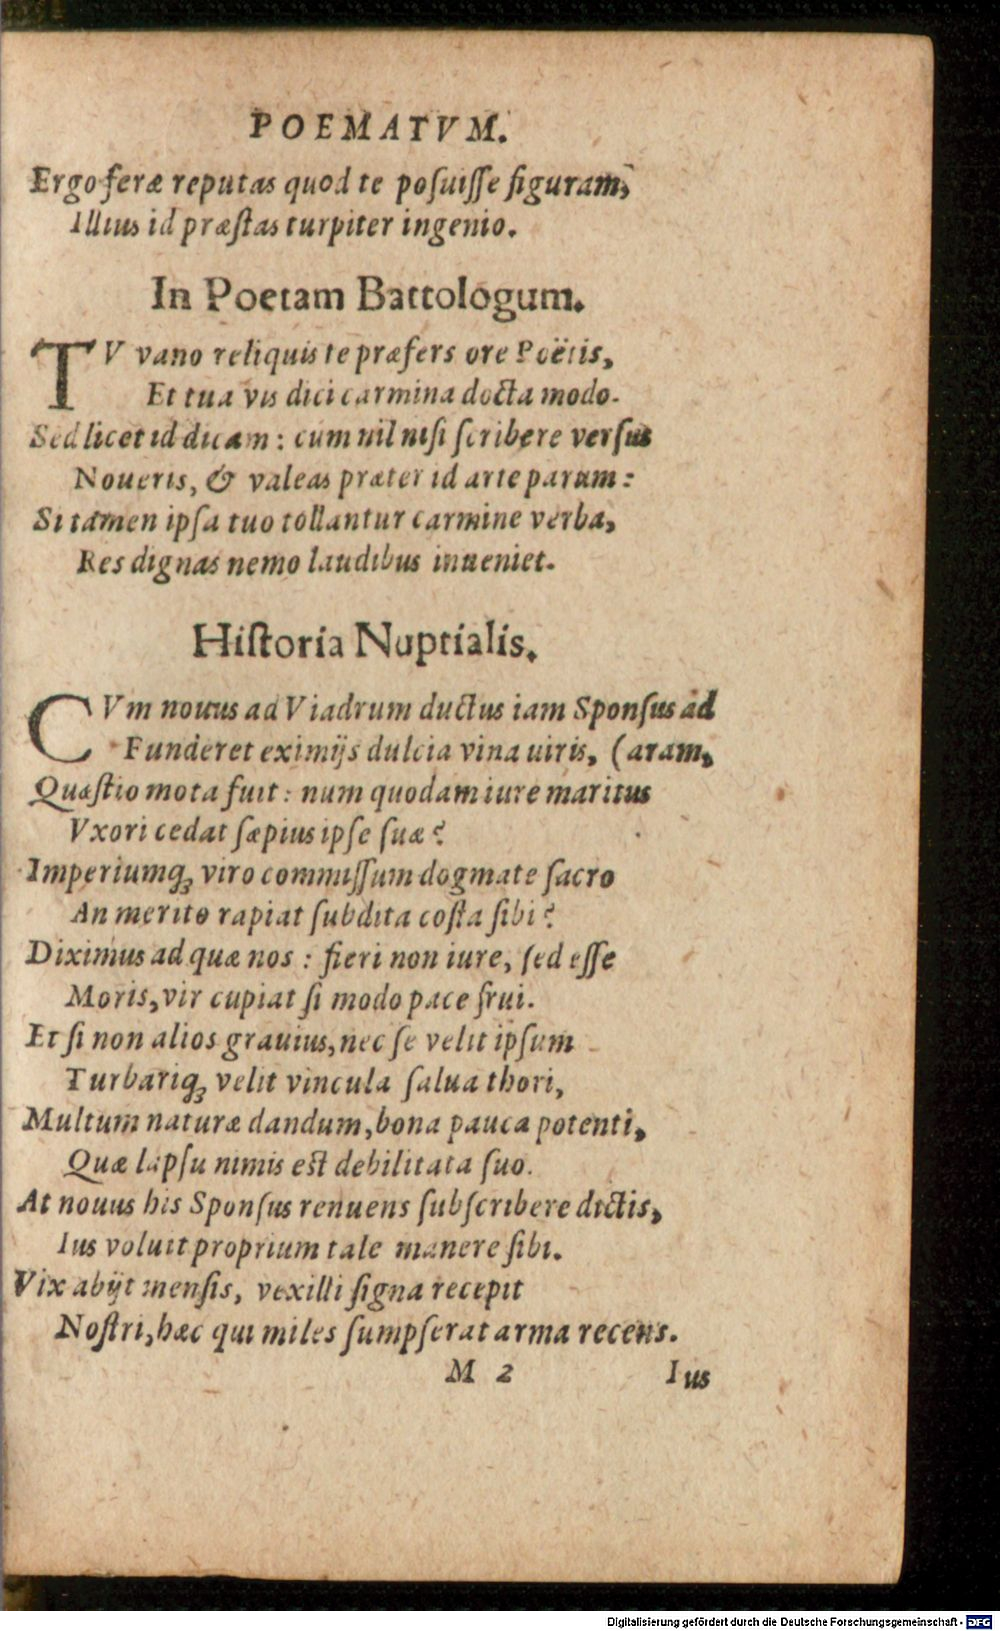 POEMATVM.
Ergo feræ reputas quod te posuisse figuram,
Illius id præstas turpiter ingenio.
In Poetam Battologum.
TV vano reliquis te præfers ore Poëtis,
Et tua vis dici carmina docta modo.
Sed licet id dicam: cum nil nisi scribere versus
Noueris, & valeas præter id arte parum:
Si tamen ipsa tuo tollantur carmine verba,
Res dignas nemo laudibus inueniet.
Historia Nuptialis.
CVm nouus ad Viadrum ductus iam Sponsus ad
Funderet eximijs dulcia vina uiris, (aram,
Quæstio mota fuit: num quodam iure maritus
Vxori cedat sæpius ipse suæ?
Imperiumq́; viro commissum dogmate sacro
An merito rapiat subdita costa sibi?
Diximus ad quæ nos: fieri non iure, sed esse
Moris, vir cupiat si modo pace frui.
Et si non alios grauius, nec se velit ipsum
Turbariq́; velit vincula salua thori,
Multum naturæ dandum, bona pauca potenti,
Quæ lapsu nimis est debilitata suo.
At nouus his Sponsus renuens subscribere dictis,
Ius voluit proprium tale manere sibi.
Vix abijt mensis, vexilli signa recepit
Nostri, hæc qui miles sumpserat arma recens.
M 2 Ius
Digitalisierung gefördert durch die Deutsche Forschungsgemeinschaft - DFG